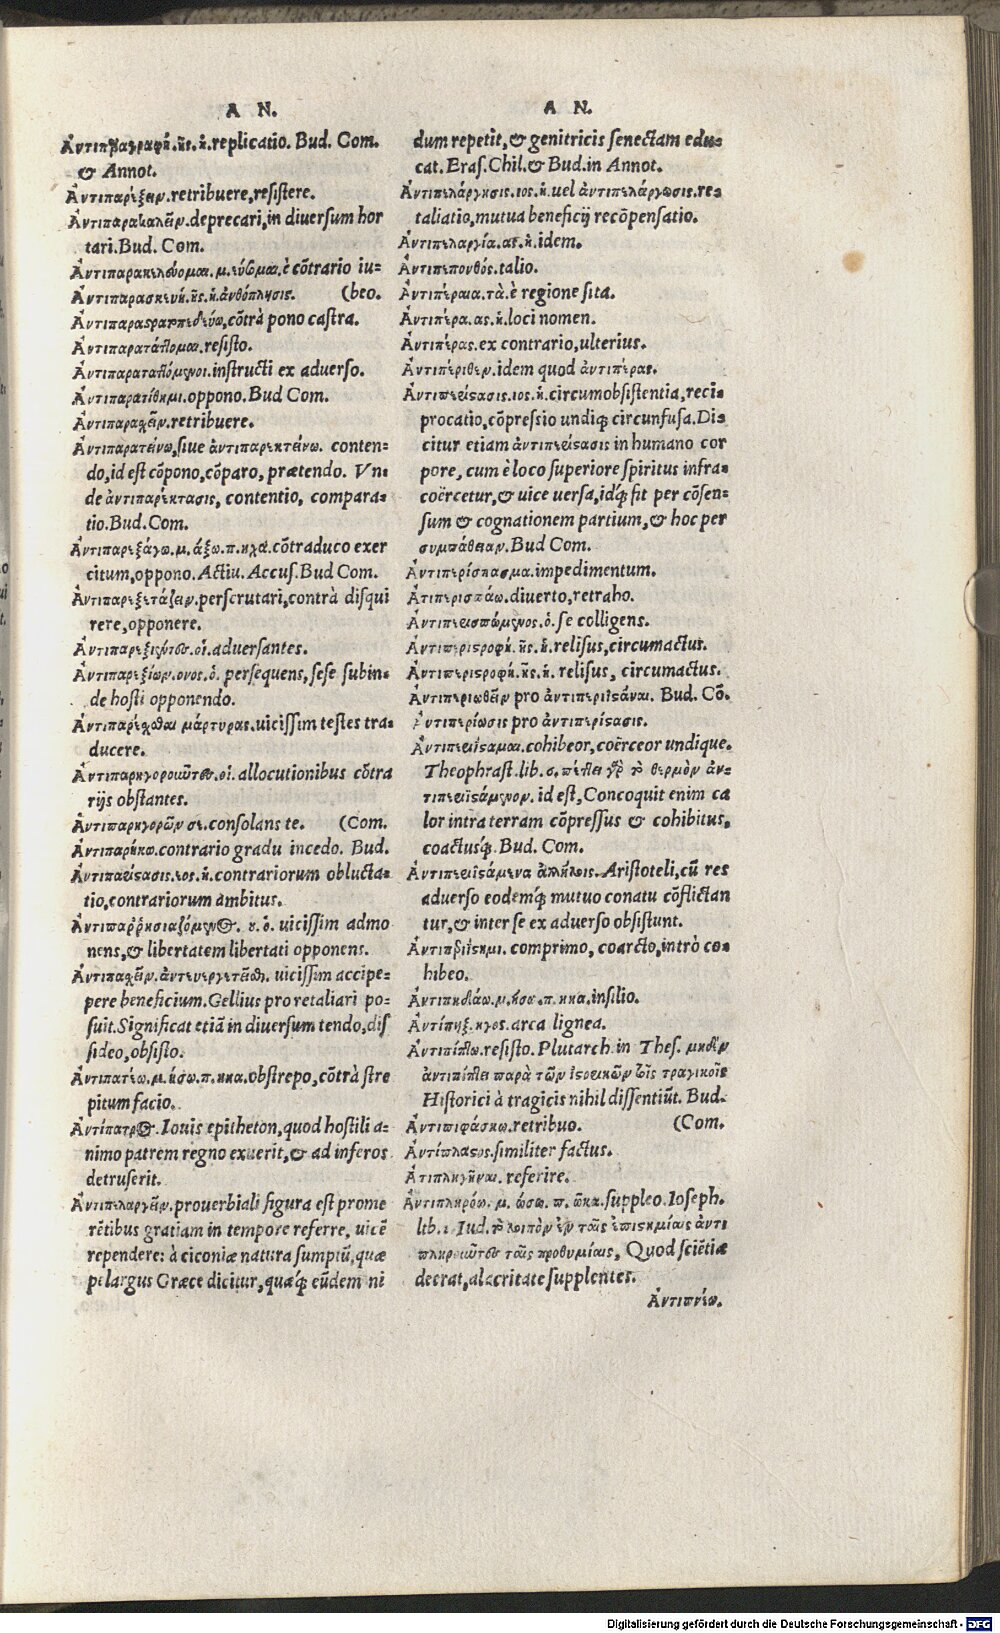 A N.
Ἀντιπαραγραφή.ῆς.ἡ.replicatio. Bud. Com.
& Annot.
Ἀντιπαρέξειν.retribuere,resistere.
Ἀντιπαρακαλεῖν.deprecari,in diuersum hor
tari.Bud. Com.
Ἀντιπαρακελεύομαι.μ.εύσομαι.è cōtrario iu-
Ἀντιπαρασκευή.ῆς.ἡ.ἀνθόπλησις. (beo.
Ἀντιπαραστρατοπεδεύω,cōtrà pono castra.
Ἀντιπαρατάττομαι.resisto.
Ἀντιπαραταττόμενοι.instructi ex aduerso.
Ἀντιπαρατίθημι.oppono.Bud Com.
Ἀντιπαρασχεῖν.retribuere.
Ἀντιπαρατείνω,siue ἀντιπαρεκτείνω. conten-
do,id est cōpono,cōparo, prætendo. Vn-
de ἀντιπαρέκτασις, contentio, compara-
tio.Bud.Com.
Ἀντιπαρεξάγω.μ.άξω.π.ηχα.cōtraduco exer
citum,oppono. Actiu. Accus.Bud Com.
Ἀντιπαρεξετάζειν.perscrutari,contrà disqui
rere,opponere.
Ἀντιπαρεξιόντες.οἱ.aduersantes.
Ἀντιπαρεξιών.οντος.ὁ. persequens,sese subin-
de hosti opponendo.
Ἀντιπαρέχεσθαι μάρτυρας.uicissim testes tra-
ducere.
Ἀντιπαρηγοροῦντες.οἱ.allocutionibus cōtra
rijs obstantes.
Ἀντιπαρηγορῶν σε.consolans te. (Com.
Ἀντιπαρήκω.contrario gradu incedo. Bud.
Ἀντιπαρίστασις.εος.ἡ.contrariorum obluctа-
tio,contrariorum ambitus.
Ἀντιπαῤῥησιαζόμενος. ου. ὁ. uicissim admo
nens,& libertatem libertati opponens.
Ἀντιπαθεῖν.ἀντευεργετεῖσθαι. uicissim accipe-
pere beneficium.Gellius pro retaliari po-
suit.Significat etiā in diuersum tendo,dis
sideo,obsisto.
Ἀντιπατέω.μ.ήσω.π.ηκα.obstrepo,cōtrà stre
pitum facio.
Ἀντίπατρος.Iouis epitheton,quod hostili a-
nimo patrem regno exuerit,& ad inferos
detruserit.
Ἀντιπελαργεῖν.prouerbiali figura est prome
rētibus gratiam in tempore referre, uicē
rependere: à ciconiæ natura sumptū,quæ
pelargus Græce dicitur,quæq́; eūdem ni
A N.
dum repetit,& genitricis senectam edu-
cat. Eras.Chil.& Bud.in Annot.
Ἀντιπελάργησις.ιος.ἡ.uel ἀντιπελάργωσις.re-
taliatio,mutua beneficij recōpensatio.
Ἀντιπελαργία.ας.ἡ.idem.
Ἀντιπεπονθός.talio.
Ἀντιπέραια.τὰ.è regione sita.
Ἀντιπέρα.ας.ἡ.loci nomen.
Ἀντιπέρας.ex contrario,ulterius.
Ἀντιπέριθεν.idem quod ἀντιπέρας.
Ἀντιπερίστασις.ιος.ἡ.circumobsistentia,reci
procatio,cōpressio undiq; circunfusa.Di-
citur etiam ἀντιπερίστασις in humano cor
pore, cum è loco superiore spiritus infra-
coërcetur,& uice uersa,idq́; fit per cōsen-
sum & cognationem partium,& hoc per
συμπάθειαν.Bud Com.
Ἀντιπερίσπασμα.impedimentum.
Ἀτιπερισπάω.diuerto,retraho.
Ἀντιπερισπώμενος.ὁ.se colligens.
Ἀντιπεριστροφή.ῆς.ἡ.relisus,circumactus.
Ἀντιπεριστροφή.ῆς.ἡ. relisus, circumactus.
Ἀντιπεριωθεῖν pro ἀντιπεριϊστάναι. Bud. Cō.
Ἀντιπερίωσις pro ἀντιπερίστασις.
Ἀντιπεριίσταμαι.cohibeor,coërceor undique.
Theophrast.lib.ϛ.πέττει γὰρ τὸ θερμὸν ἀν-
τιπεριϊστάμενον. id est,Concoquit enim ca
lor intra terram cōpressus & cohibitus,
coactusq́;. Bud. Com.
Ἀντιπεριϊστάμενα ἀλλήλοις. Aristoteli,cū res
aduerso eodemq́; mutuo conatu cōflictan
tur,& inter se ex aduerso obsistunt.
Ἀντιπεριΐστημι. comprimo, coarcto,intrò co-
hibeo.
Ἀντιπηδάω.μ.ήσω.π.ηκα,insilio.
Ἀντίπηξ.ηγος.arca lignea.
Ἀντιπίπτω.resisto. Plutarch.in Thes. μηδὲν
ἀντιπίπτει παρὰ τῶν ἱστορικῶν τοῖς τραγικοῖς
Historici à tragicis nihil dissentiūt. Bud.
Ἀντιπιφάσκω.retribuo. (Com.
Ἀντίπλαστος.similiter factus.
Ἀτιπληγῆναι. referire.
Ἀντιπληρόω. μ. ώσω. π. ωκα.suppleo. Ioseph.
lib.1. Iud.τὸ λοιπὸν ἐν ταῖς ἐπιστημίαις ἀντι
πληροῦντες ταῖς προθυμίαις, Quod sciētiæ
deerat,alacritate supplentes.
Ἀντιπνέω.
Digitalisierung gefördert durch die Deutsche Forschungsgemeinschaft - DFG